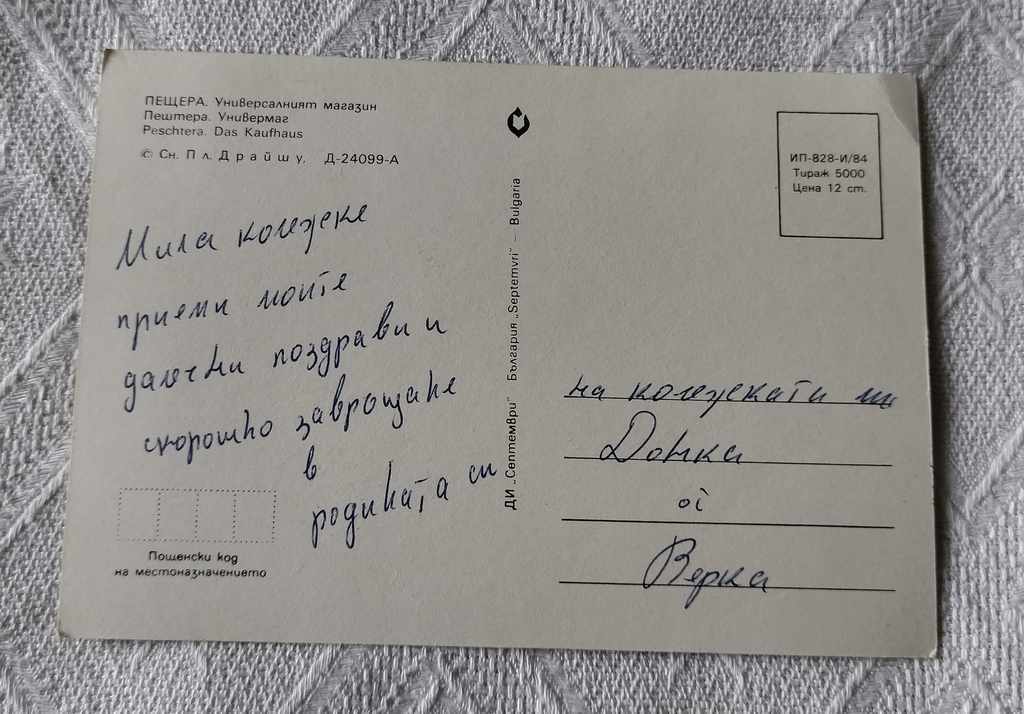 ПЕЩЕРА. Универсалният магазин
Пештера. Универмаг
Peschtera. Das Kaufhaus
© Сн. Пл. Драйшу, Д-24099-А
Мила колежке
приеми моите
далечни поздрави и
скорошно завръщане
в
родината си
Пощенски код
на местоназначението
ДИ „Септември" България „Septemvri" – Bulgaria
ИП-828-И/84
Тираж 5000
Цена 12 ст.
на колежката ми
Донка
от
Верка